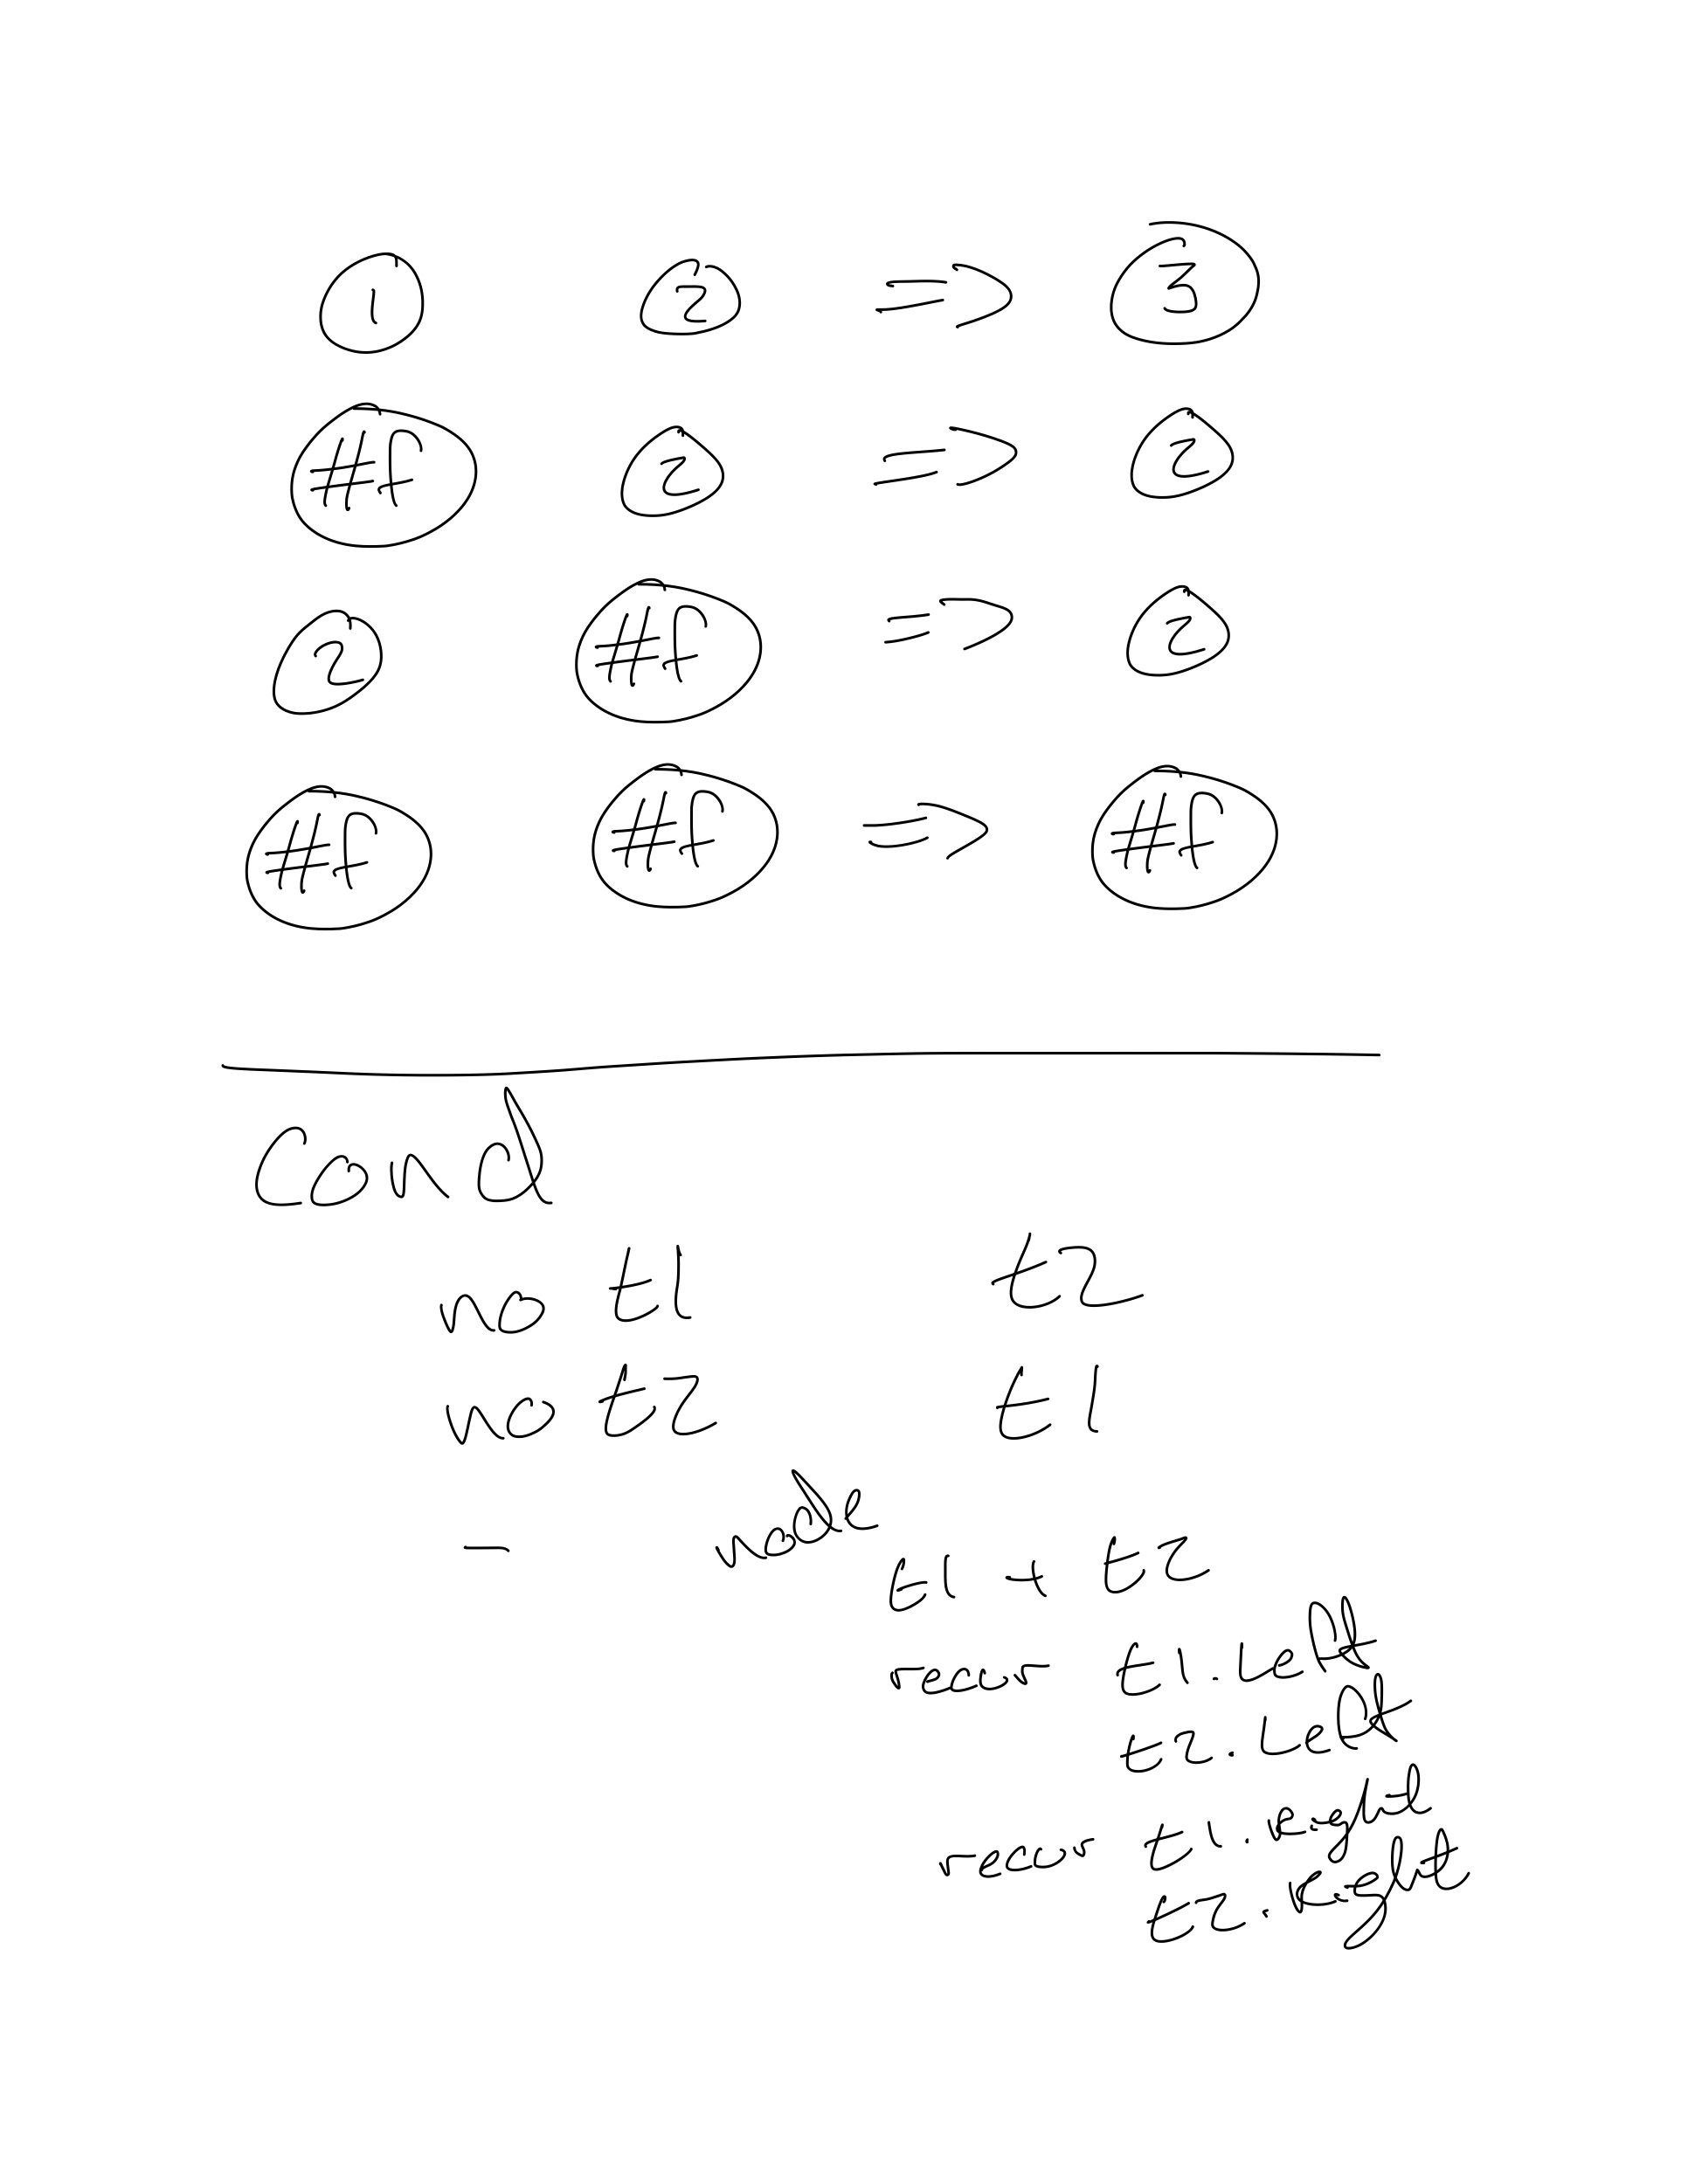 1 2 => 3
#f 2 => 2
2 #f => 2
#f #f => #f
Cond
no t1 t2
no t2 t1
- node
t1 + t2
recur t1.Left
t2.Left
recur t1.Right
t2.Right